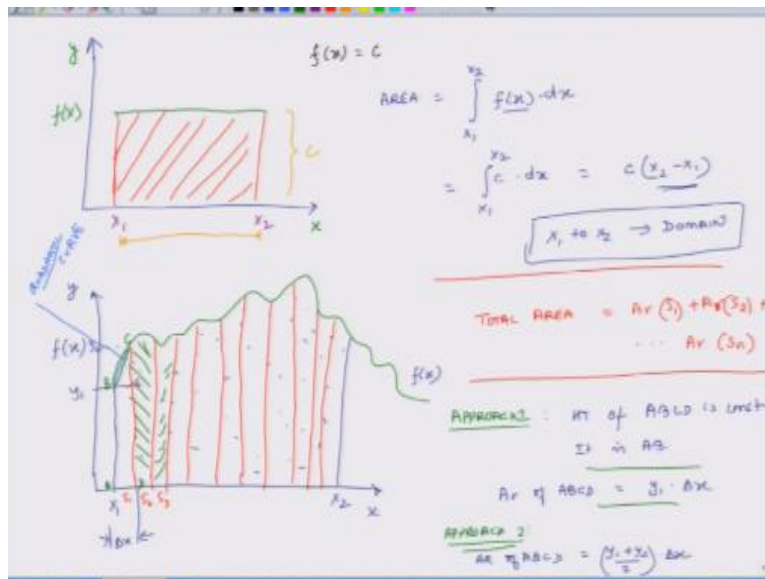 y
f(x) = c
f(x)
c
x₁
x₂
x
AREA = ∫ₓ₁ˣ² f(x)·dx
= ∫ₓ₁ˣ² c·dx = c(x₂-x₁)
x₁ to x₂ → DOMAIN
QUADRATIC
CURVE
y
f(x)
y₁
f(x)
x₁
S₁
S₂
S₃
x₂
x
Δx
TOTAL AREA = Ar(S₁) + Ar(S₂) +
... Ar(Sn)
APPROACH 1 : HT of ABCD is const
It is AB
Ar of ABCD = y₁·Δx
APPROACH 2:
AR of ABCD = (y₁+y₂/2)·Δx